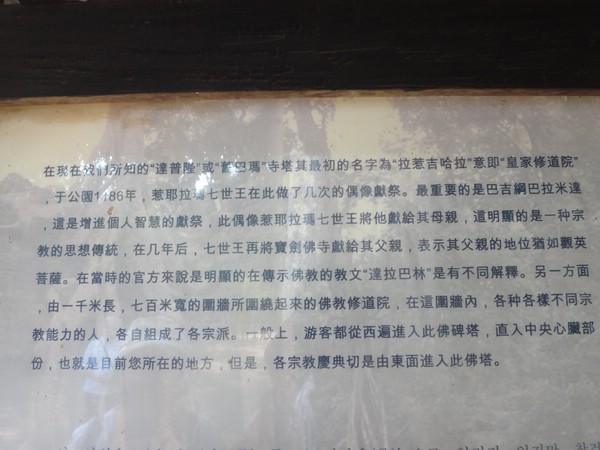 在現在我們所知的“達普隆”或“蓄巴瑪”寺塔其最初的名字為“拉惹吉哈拉”意即“皇家修道院”
，于公園1186年，惹耶拉瑪七世王在此做了几次的偶像獻祭。最重要的是巴吉綱巴拉米達
，這是增進個人智慧的獻祭，此偶像惹耶拉瑪七世王將他獻給其母親，這明顯的是一种宗
教的思想傳統，在几年后，七世王再將寶劍佛寺獻給其父親，表示其父親的地位猶如觀英
菩薩。在當時的官方來說是明顯的在傳示佛教的教文“達拉巴林”是有不同解釋。另一方面
，由一千米長，七百米寬的圍牆所圍繞起來的佛教修道院，在這圍牆內，各种各樣不同宗
教能力的人，各自組成了各宗派。一般上，游客都從西邊進入此佛碑塔，直入中央心臟部
份，也就是目前您所在的地方，但是，各宗教慶典切是由東面進入此佛塔。